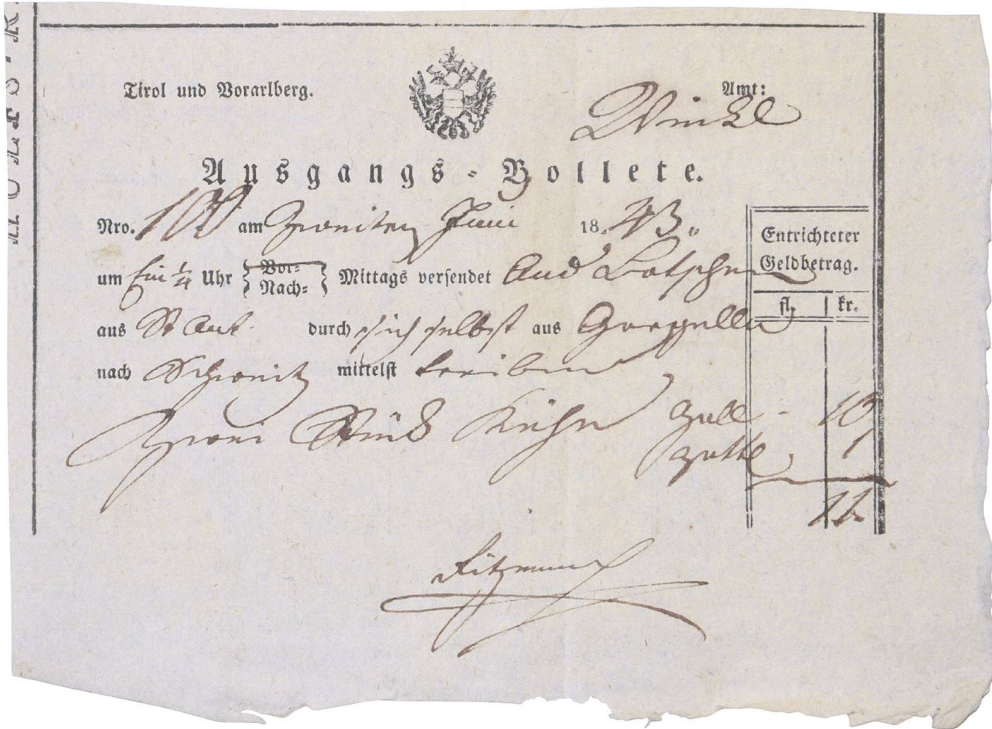 Tirol und Vorarlberg.
Amt:
Winkl
Ausgangs-Bollete.
Nro. 100 am zweiten Juni 18.43.
um Ein ¼ Uhr { Vor- Nach- } Mittags versendet And
aus St Ant. durch sich selbst aus Gargellen
nach Schweitz mittelst treiben
Zwei Stück Kühe Zoll - 10
Zette 1
11
Entrichteter
Geldbetrag.
fl. kr.